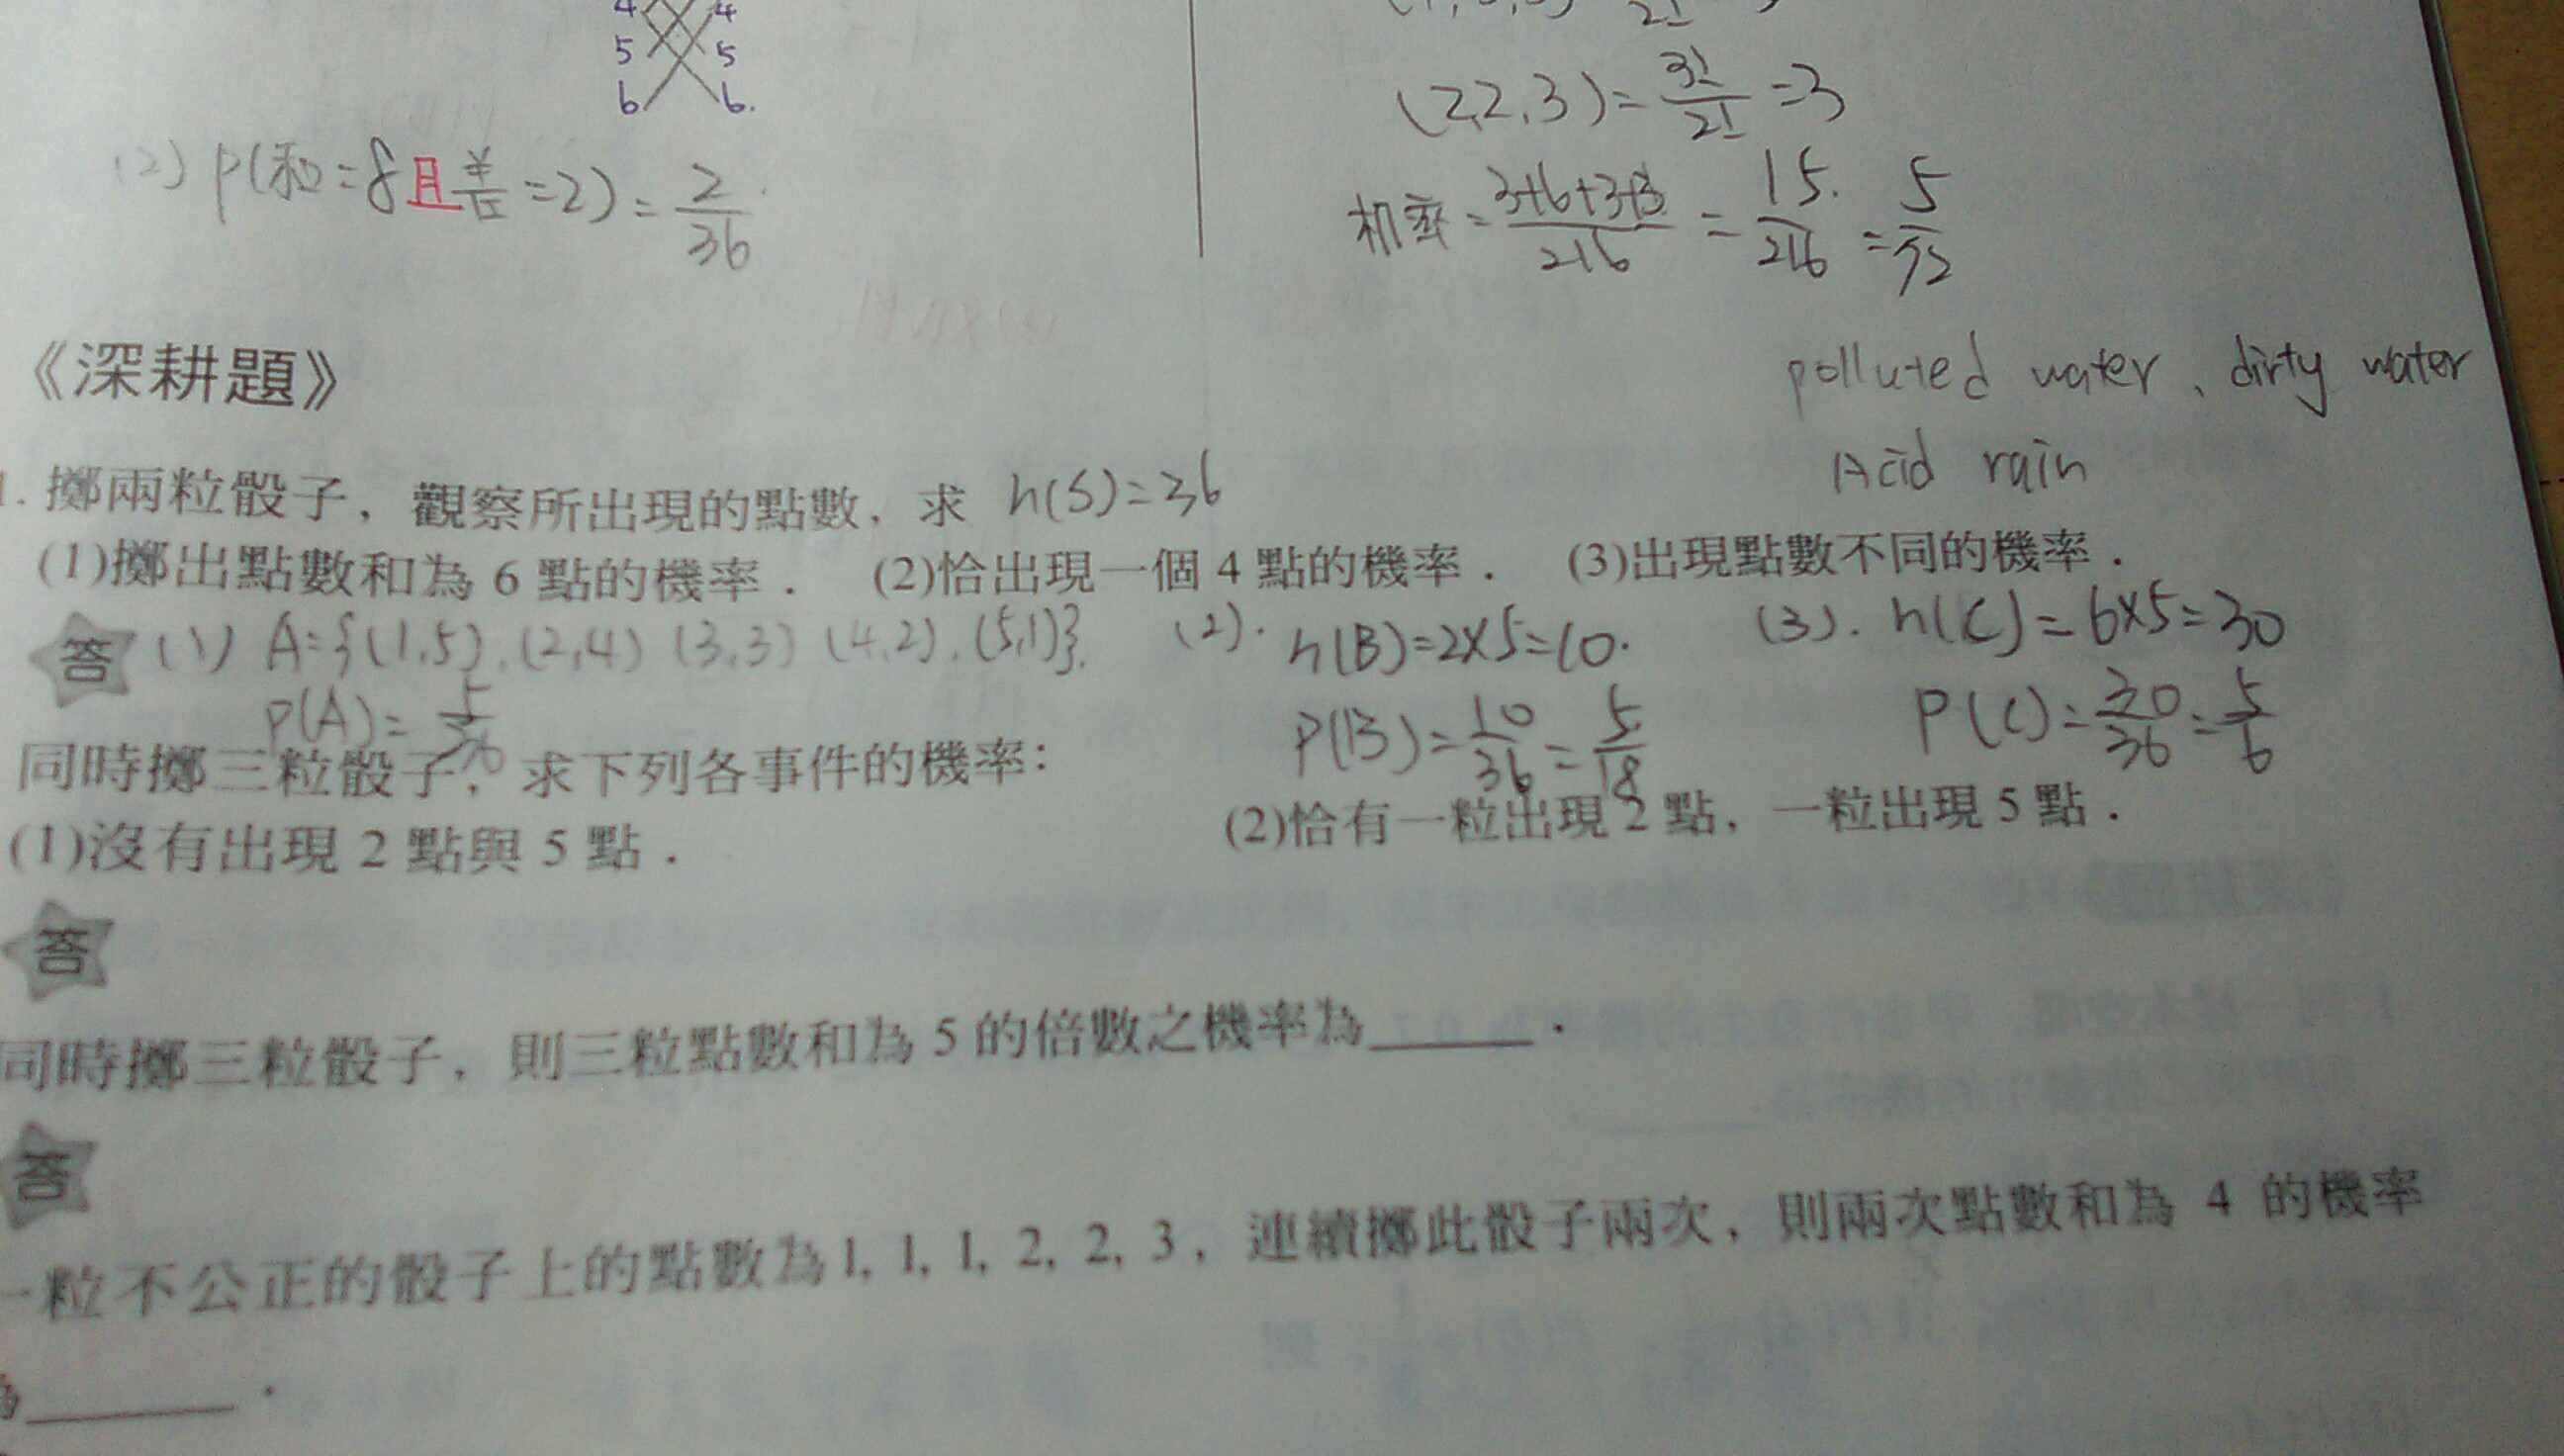 4 4
5 5
6 6.
(2) P(和=8且差=2)=2/36
(2,2,3)=3!/2!=3
机率=3+6+3+3/216=15/216=5/72
《深耕題》
polluted water、dirty water
Acid rain
1. 擲兩粒骰子，觀察所出現的點數，求 n(S)=36
(1)擲出點數和為 6 點的機率． (2)恰出現一個 4 點的機率． (3)出現點數不同的機率．
答 (1) A={(1,5),(2,4) (3,3) (4,2),(5,1)}. (2). n(B)=2×5=10. (3). n(C)=6×5=30
P(A)=5/36 P(B)=10/36=5/18 P(C)=30/36=5/6
同時擲三粒骰子，求下列各事件的機率：
(1)沒有出現 2 點與 5 點． (2)恰有一粒出現 2 點，一粒出現 5 點．
答
同時擲三粒骰子，則三粒點數和為 5 的倍數之機率為______．
答
一粒不公正的骰子上的點數為1, 1, 1, 2, 2, 3，連續擲此骰子兩次，則兩次點數和為 4 的機率
為________．